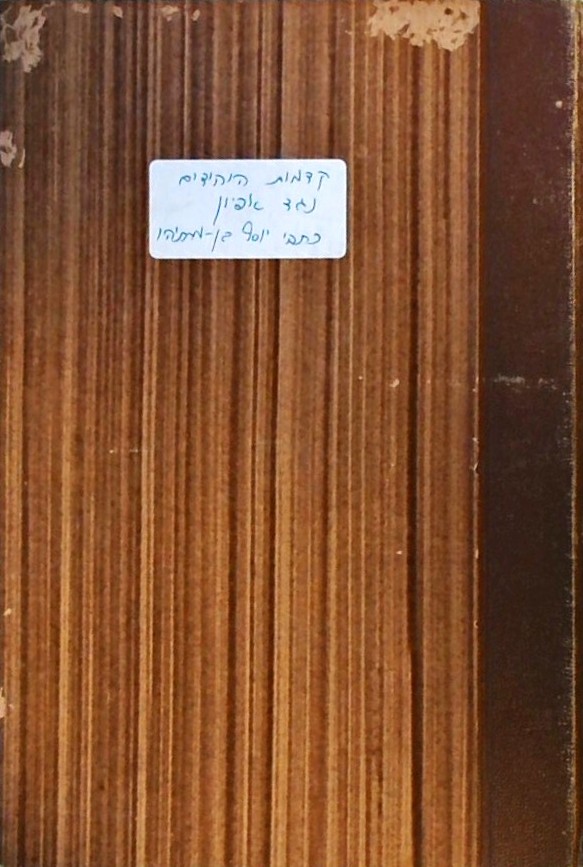 קדמות היהודים
נגד אפיון
כתבי יוסף בן-מתתיהו